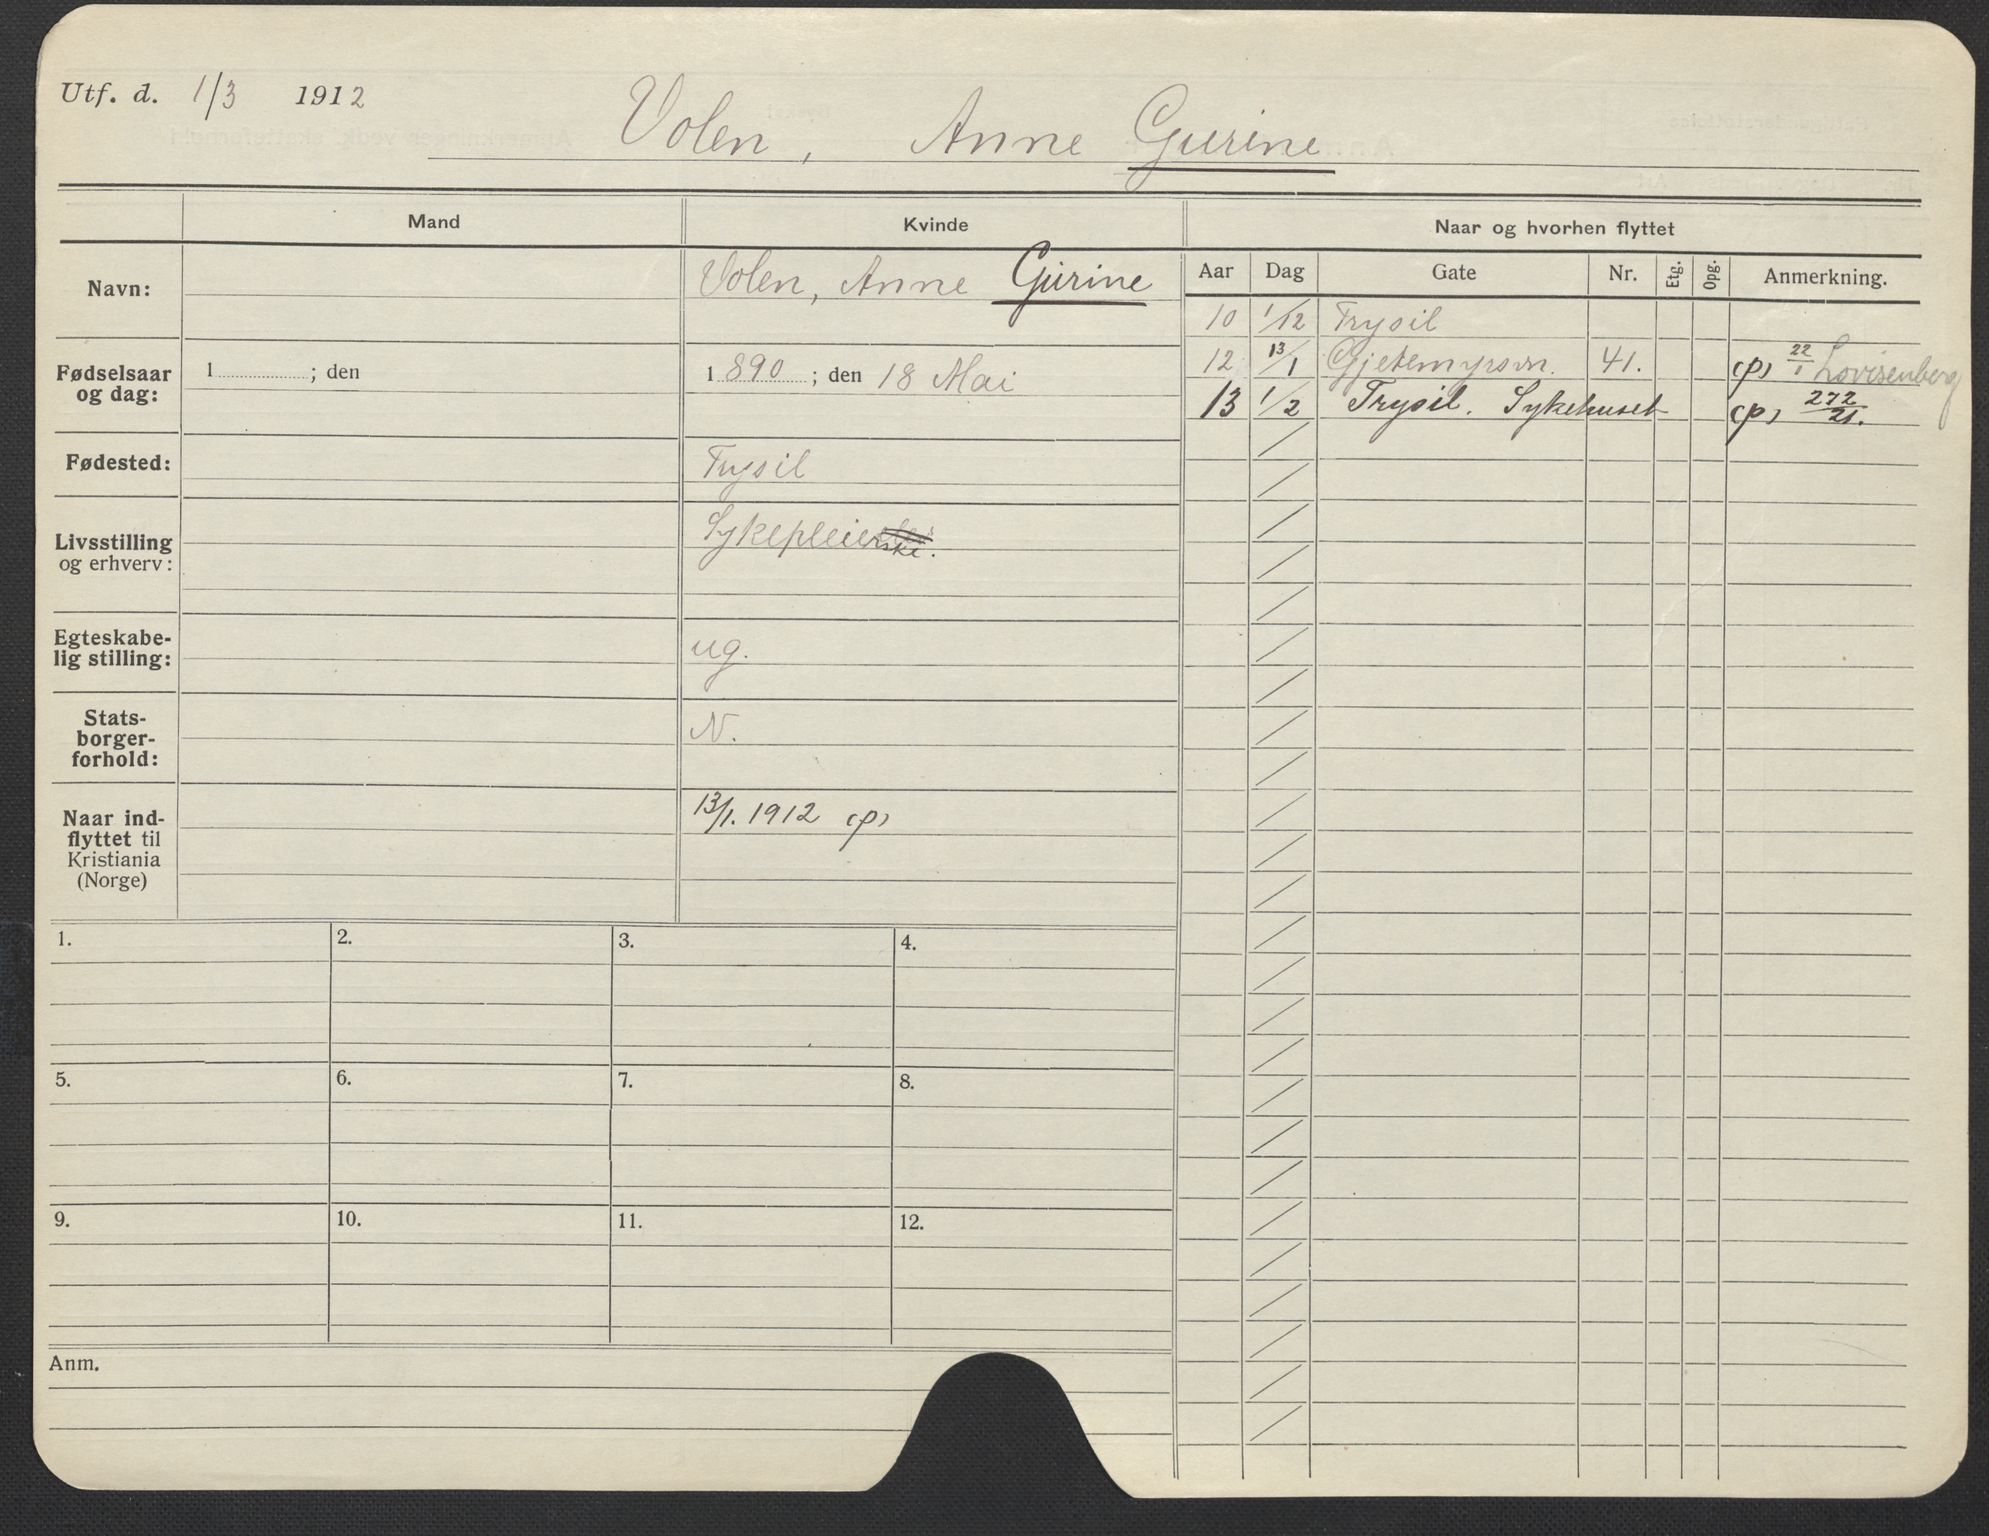 Utf. d. 1/3 1912
Volen, Anne Gurine
Mand
Kvinde
Naar og hvorhen flyttet
Navn:
Volen, Anne Gurine
Aar Dag Gate Nr. Etg. Opg. Anmerkning.
10 1/12 Trysil
12 13/1 Gjetemyrsvn. 41. (p) 22/1 Lovisenberg
13 1/2 Trysil. Sykehuset (p) 272/21.
Fødselsaar
og dag:
1 ; den
1890 ; den 18 Mai
Fødested:
Trysil
Livsstilling
og erhverv:
Sykepleierske.
Egteskabe-
lig stilling:
ug.
Stats-
borger-
forhold:
N.
Naar ind-
flyttet til
Kristiania
(Norge)
13/1. 1912 (p)
1. 2. 3. 4.
5. 6. 7. 8.
9. 10. 11. 12.
Anm.